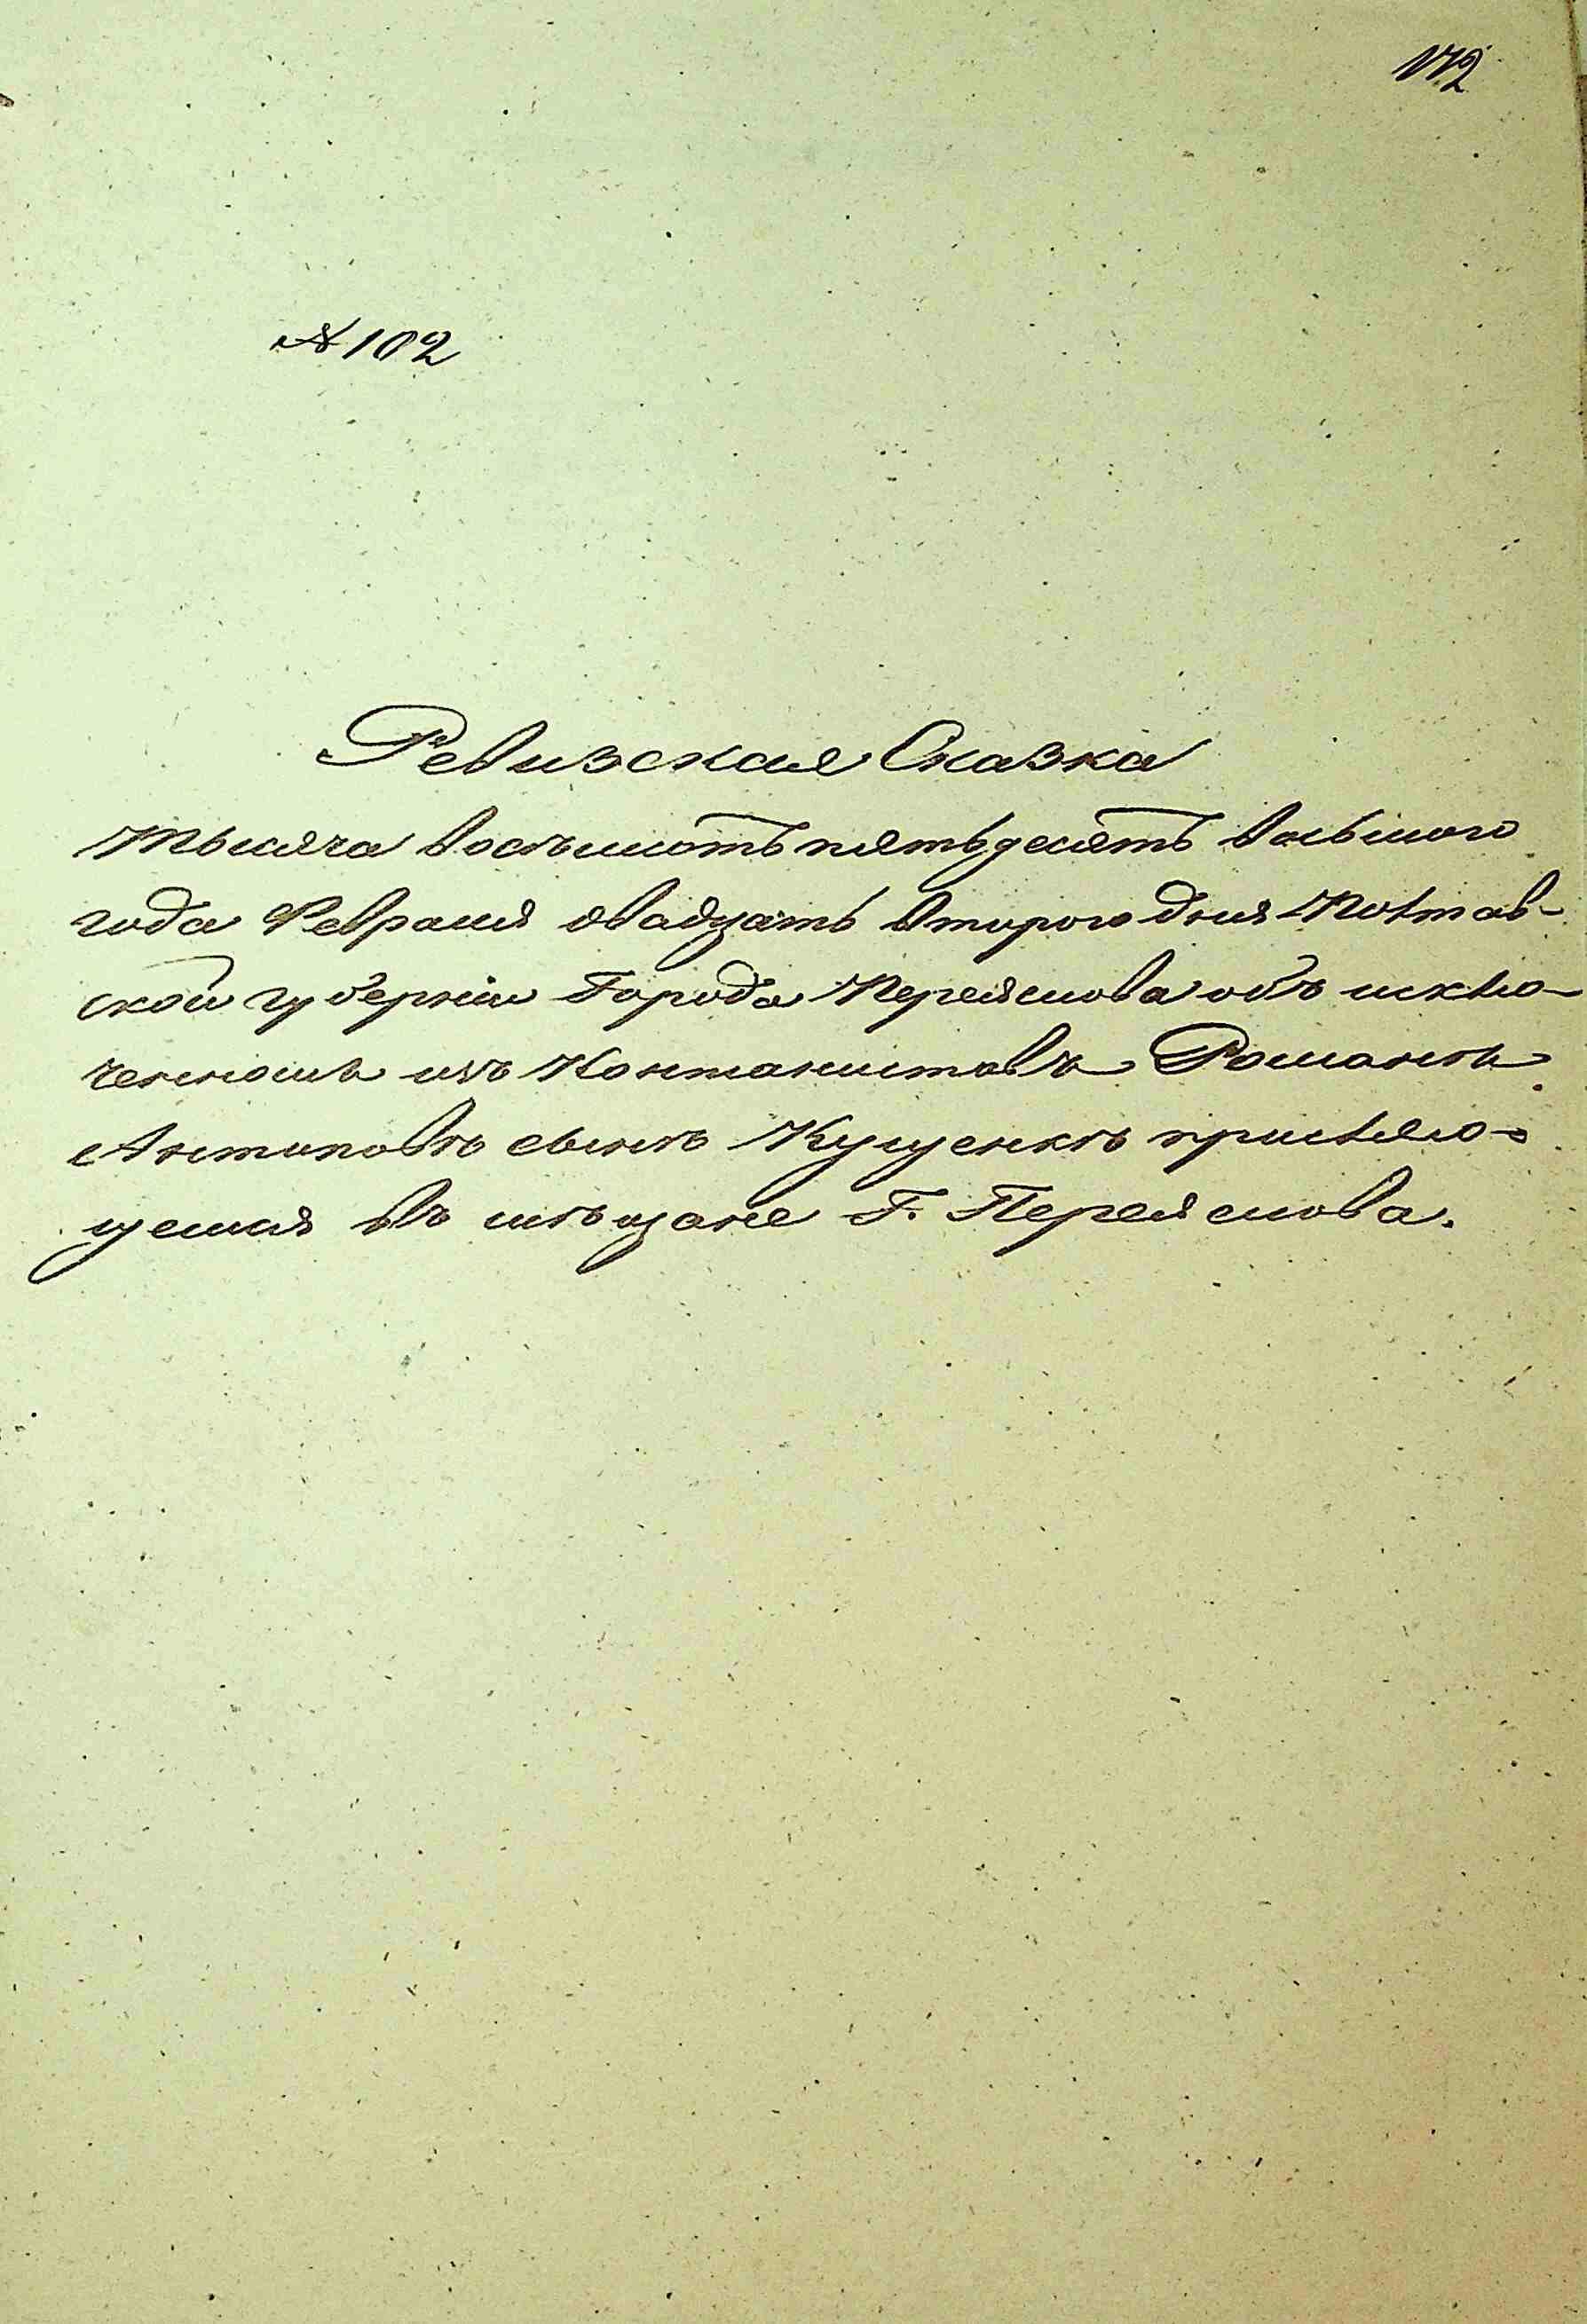 172
№ 102
Ревизская Сказка
Тысяча восѣмьсотъ пятьдесятъ восьмого
года Февраля двадцать второго дня Полтав-
ской губерніи Города Переяслова объ исклю-
ченномъ изъ Кантонистовъ Романѣ
Антиповѣ сынѣ Куценкѣ
въ мѣщане Г. Переяслова.